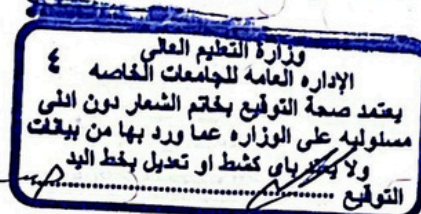 وزارة التعليم العالى
الإداره العامه للجامعات الخاصه ٤
يعتمد صحة التوقيع بخاتم الشعار دون ادنى
مسئوليه على الوزاره عما ورد بها من بيانات
ولا يعتد باى كشط او تعديل بخط اليد
التوقيع ....................................